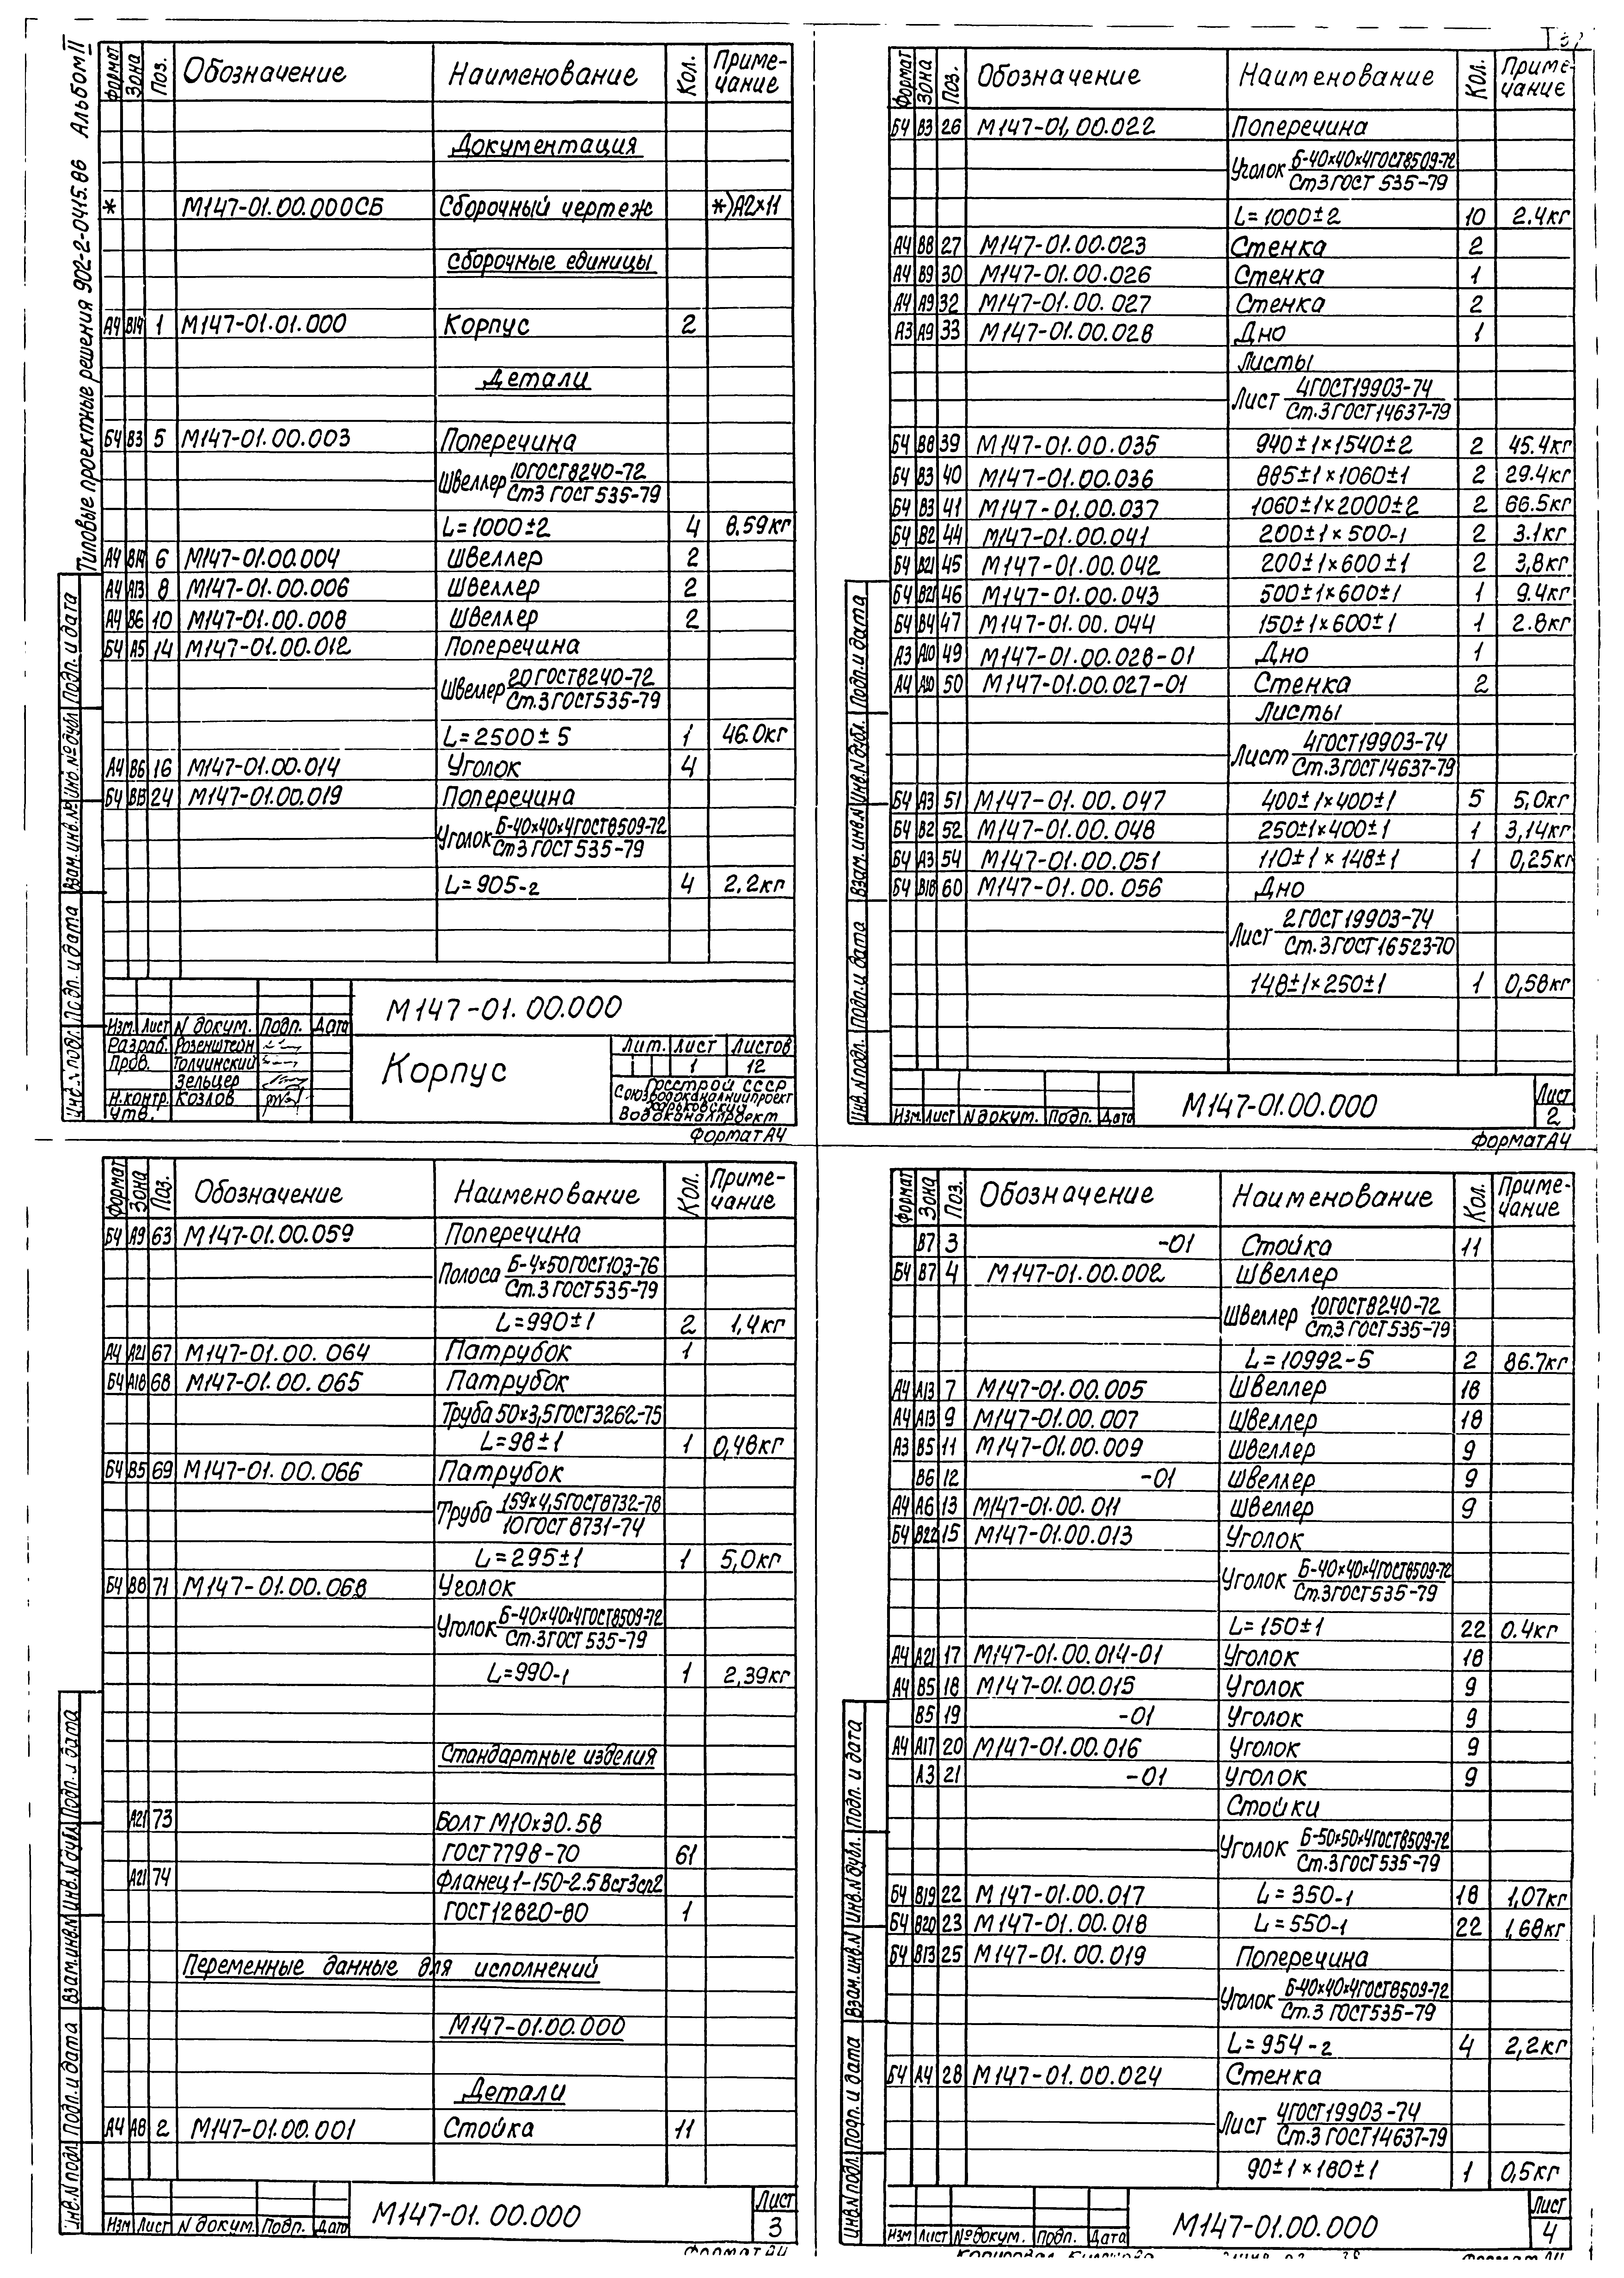 Типовые проектные решения 902-2-0415.86 Альбом II
Формат Зона Поз. Обозначение Наименование Кол. Примечание
Документация
* М147-01.00.000СБ Сборочный чертеж *)А2×11
Сборочные единицы
А4 В14 1 М147-01.01.000 Корпус 2
Детали
Б4 В3 5 М147-01.00.003 Поперечина
Швеллер 10ГОСТ8240-72
Ст3 ГОСТ 535-79
L=1000±2 4 8.59кг
А4 В14 6 М147-01.00.004 Швеллер 2
А4 А13 8 М147-01.00.006 Швеллер 2
А4 В6 10 М147-01.00.008 Швеллер 2
Б4 А5 14 М147-01.00.012 Поперечина
Швеллер 20ГОСТ8240-72
Ст.3ГОСТ535-79
L=2500±5 1 46.0кг
А4 В6 16 М147-01.00.014 Уголок 4
Б4 24 М147-01.00.019 Поперечина
Уголок Б-40×40×4ГОСТ8509-72
Ст3ГОСТ535-79
L=905-2 4 2,2кг
М147-01.00.000
Изм. Лист N докум. Подп. Дата
Разраб. Розенштейн
Пров. Толчинский
Зельцер
Н.контр. Козлов
Утв.
Корпус
Лит. Лист Листов
1 12
Госстрой СССР
Союзводоканалниипроект
Харьковский
Водоканалпроект
Формат А4
Инв.N подл. Подп. и дата Взам.инв.№ Инв.№дубл Подп. и дата
Формат Зона Поз. Обозначение Наименование Кол. Примечание
Б4 В3 26 М147-01,00.022 Поперечина
Уголок Б-40×40×4ГОСТ8509-72
Ст3ГОСТ 535-79
L=1000±2 10 2.4кг
А4 В8 27 М147-01.00.023 Стенка 2
А4 В9 30 М147-01.00.026 Стенка 1
А4 А9 32 М147-01.00.027 Стенка 2
А3 А9 33 М147-01.00.028 Дно 1
Листы
Лист 4ГОСТ19903-74
Ст.3ГОСТ14637-79
Б4 В8 39 М147-01.00.035 940±1×1540±2 2 45.4кг
Б4 В3 40 М147-01.00.036 885±1×1060±1 2 29.4кг
Б4 В3 41 М147-01.00.037 1060±1×2000±2 2 66.5кг
Б4 В2 44 М147-01.00.041 200±1×500-1 2 3.1кг
Б4 В21 45 М147-01.00.042 200±1×600±1 2 3,8кг
Б4 В21 46 М147-01.00.043 500±1×600±1 1 9.4кг
Б4 В4 47 М147-01.00.044 150±1×600±1 1 2.8кг
А3 А10 49 М147-01.00.028-01 Дно 1
А4 А10 50 М147-01.00.027-01 Стенка 2
Листы
Лист 4ГОСТ19903-74
Ст.3ГОСТ14637-79
Б4 А3 51 М147-01.00.047 400±1×400±1 5 5,0кг
Б4 В2 52 М147-01.00.048 250±1×400±1 1 3,14кг
Б4 А3 54 М147-01.00.051 110±1×148±1 1 0,25кг
Б4 В18 60 М147-01.00.056 Дно
Лист 2ГОСТ19903-74
Ст.3ГОСТ16523-70
148±1×250±1 1 0,58кг
Изм. Лист N докум. Подп. Дата
М147-01.00.000
Лист
2
Формат А4
Инв.N подл. Подп. и дата Взам.инв.N Инв.N дубл. Подп. и дата
Формат Зона Поз. Обозначение Наименование Кол. Примечание
Б4 А9 63 М147-01.00.059 Поперечина
Полоса Б-4×50ГОСТ103-76
Ст.3ГОСТ535-79
L=990±1 2 1,4кг
А4 А21 67 М147-01.00.064 Патрубок 1
Б4 А18 68 М147-01.00.065 Патрубок
Труба 50×3,5ГОСТ3262-75
L=98±1 1 0,48кг
Б4 В5 69 М147-01.00.066 Патрубок
Труба 159×4,5ГОСТ8732-78
10ГОСТ8731-74
L=295±1 1 5,0кг
Б4 В8 71 М147-01.00.068 Уголок
Уголок Б-40×40×4ГОСТ8509-72
Ст.3ГОСТ535-79
L=990-1 1 2,39кг
Стандартные изделия
А21 73 Болт М10×30.58
ГОСТ7798-70 61
А21 74 Фланец 1-150-2.5Вст3сп2
ГОСТ12820-80 1
Переменные данные для исполнений
М147-01.00.000
Детали
А4 А8 2 М147-01.00.001 Стойка 11
Изм Лист N докум. Подп. Дата
М147-01.00.000
Лист
3
Формат А4
Инв.N подл. Подп. и дата Взам.инв.N Инв.N дубл. Подп. и дата
Формат Зона Поз. Обозначение Наименование Кол. Примечание
В7 3 -01 Стойка 11
Б4 В7 4 М147-01.00.002 Швеллер
Швеллер 10ГОСТ8240-72
Ст.3ГОСТ535-79
L=10992-5 2 86.7кг
А4 А13 7 М147-01.00.005 Швеллер 18
А4 А13 9 М147-01.00.007 Швеллер 18
А3 В5 11 М147-01.00.009 Швеллер 9
В6 12 -01 Швеллер 9
А4 А6 13 М147-01.00.011 Швеллер 9
Б4 В22 15 М147-01.00.013 Уголок
Уголок Б-40×40×4ГОСТ8509-72
Ст.3ГОСТ535-79
L=150±1 22 0.4кг
А4 А21 17 М147-01.00.014-01 Уголок 18
А4 В5 18 М147-01.00.015 Уголок 9
В5 19 -01 Уголок 9
А4 А17 20 М147-01.00.016 Уголок 9
А3 21 -01 Уголок 9
Стойки
Уголок Б-50×50×4ГОСТ8509-72
Ст.3ГОСТ535-79
Б4 В19 22 М147-01.00.017 L=350-1 18 1,07кг
Б4 В20 23 М147-01.00.018 L=550-1 22 1,68кг
Б4 В13 25 М147-01.00.019 Поперечина
Уголок Б-40×40×4ГОСТ8509-72
Ст.3ГОСТ535-79
L=954-2 4 2,2кг
Б4 А4 28 М147-01.00.024 Стенка
Лист 4ГОСТ19903-74
Ст.3ГОСТ14637-79
90±1×180±1 1 0,5кг
Изм Лист №докум. Подп. Дата
М147-01.00.000
Лист
4
Инв.N подл. Подп. и дата Взам.инв.N Инв.N дубл. Подп. и дата